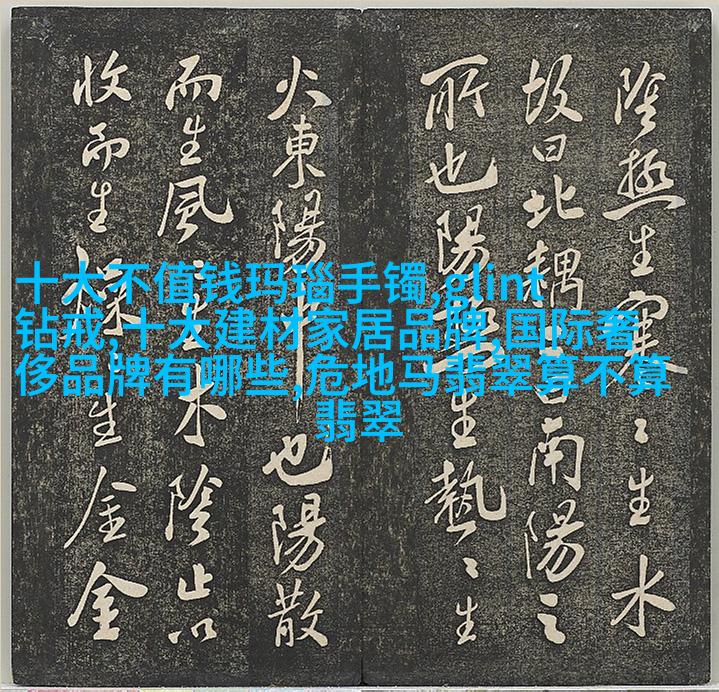 十大不值钱玛瑙手镯,glint
钻戒,十大建材家居品牌,国际奢
侈品牌有哪些,危地马翡翠算不算
翡翠
陰極生寒〻生水
故曰北耦曰南陽之
所也陽極生熱〻生
火東陽中也陽散
而生風〻生木陰止以
收而生燥生金金